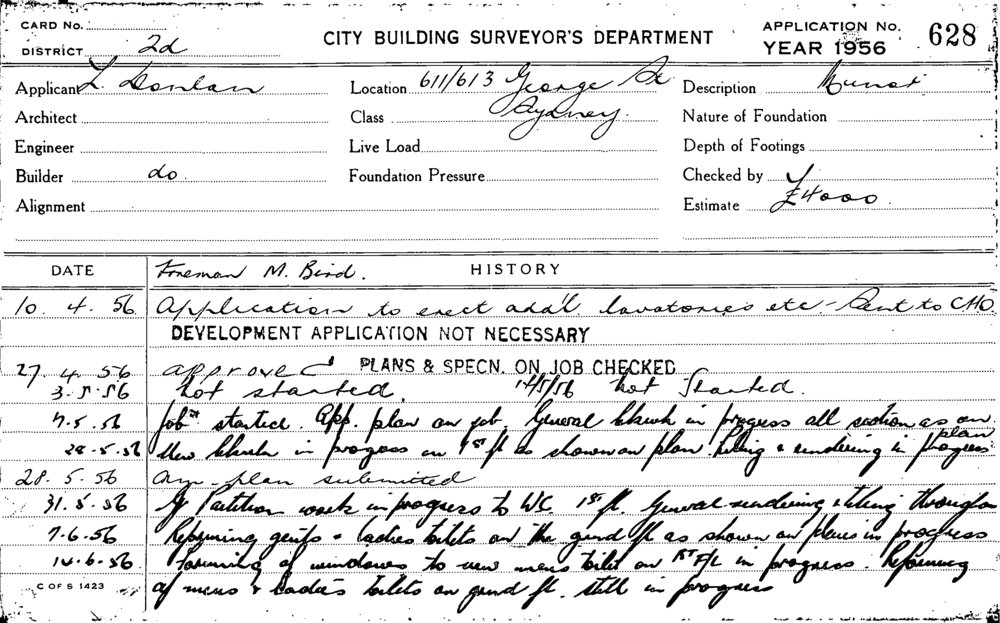 CARD No.
DISTRICT 2d
CITY BUILDING SURVEYOR'S DEPARTMENT
APPLICATION No. 628
YEAR 1956
Applicant L. Donlan
Location 611/613 George St
Sydney.
Description
Architect
Class
Nature of Foundation
Engineer
Live Load
Depth of Footings
Builder do
Foundation Pressure
Checked by
Alignment
Estimate £4000
DATE
Foreman M. Bird.
HISTORY
10. 4. 56 Application to erect add'l lavatories etc - Sent to CHO.
DEVELOPMENT APPLICATION NOT NECESSARY
27. 4. 56 approved PLANS & SPECN. ON JOB CHECKED
3.5.56 not started. 14/5/56 not started.
7.5.56 Job started. App. plan on job. General in progress all section as on plan
28.5.56 New in progress on 1st fl as shown on plan. tiling & rendering in progress
28. 5. 56 plan submitted
31.5.56 Partition work in progress to WC. 1st fl. General rendering & tiling
7.6.56 gents & ladies toilets on the grnd fl as shown on plans in progress
14.6.56 Forming of windows to new mens toilet on 1ST F/L in progress.
of mens & ladies toilets on grnd fl. still in progress
C OF S 1423